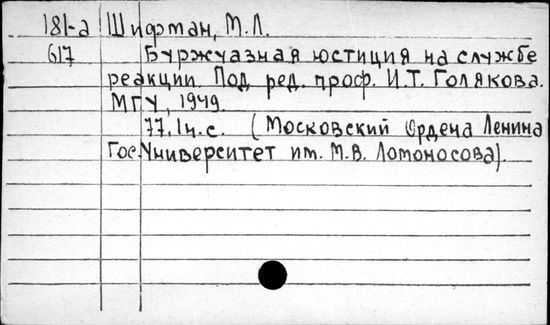 181-а Шифман, М.Л.
617 Буржуазная юстиция на службе
реакции. Под ред. проф. И.Т. Голякова.
МГУ, 1949.
77, 1н.с. (Московский Ордена Ленина
Гос.Университет им. М.В. Ломоносова).